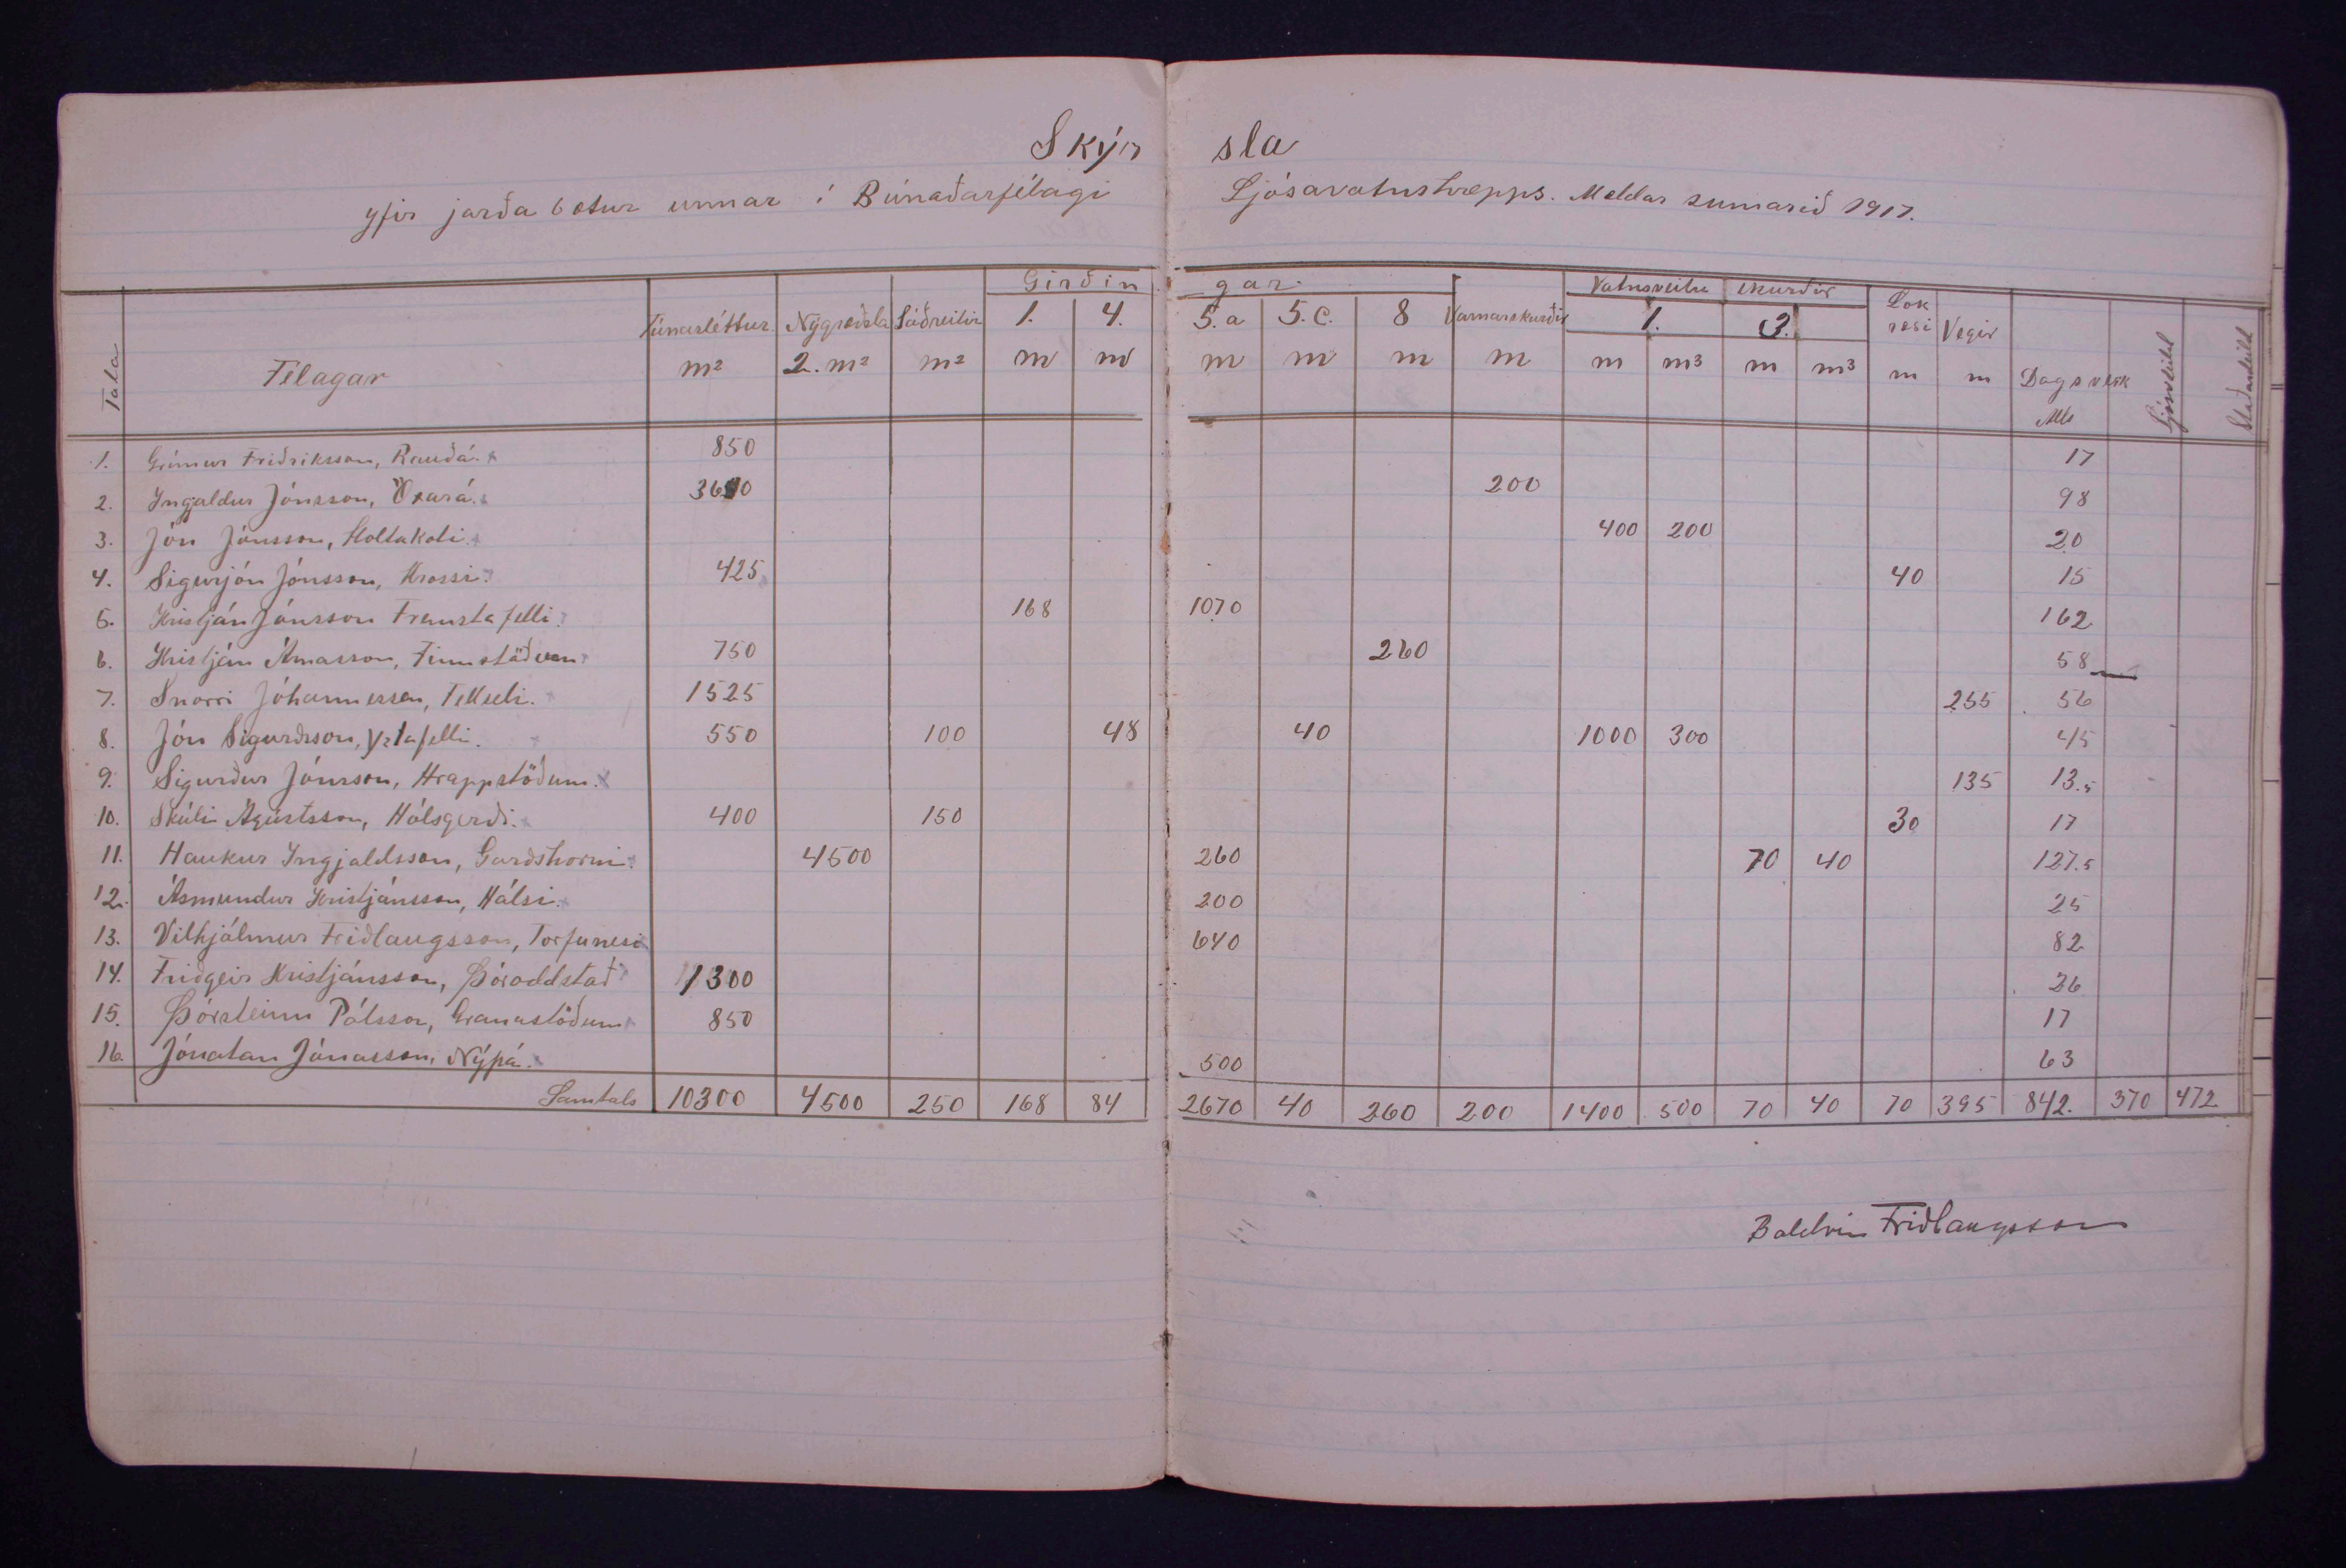 Skýr sla
yfir jarðabætur unnar í Búnaðarfélagi Ljósavatnshrepps. Mældar sumarið 1917.
Girðin gar. Vatnsveitu skurðir
Tala Félagar Túnasléttur Nýgræðsla Sáðreitir 1. 4. 5.a 5.c. 8 Varnarskurðir 1. 3. Lok ræsi Vegir Dagsverk
m² 2. m² m² m m m m m m m m³ m m³ m m Alls
1. Grímur Friðriksson, Rauðá. 850 17
2. Ingjaldur Jónsson, Öxará. 200 98
3. Jón Jónsson, Holtakoti. 400 200 20
4. Sigurjón Jónsson, Krossi. 425 40 15
5. Kristján Jónsson Fremstafelli. 168 1070 162
6. Kristján Árnasson, Finnstöðum 750 260 58
7. Snorri Jóhannesson, Fellseli. 1525 255 56
8. Jón Sigurðsson, Yztafelli. 550 100 48 40 1000 300 45
9. Sigurður Jónsson, Hrappstöðum. 135 13.5
10. Skúli Ágústsson, Hálsgerði. 400 150 30 17
11. Haukur Ingjaldsson, Garðshorni. 4500 260 70 40 127.5
12. Ásmundur Kristjánsson, Hálsi. 200 25
13. Vilhjálmur Friðlaugsson, Torfunesi 640 82
14. Friðgeir Kristjánsson, Þóroddstað 1300 26
15. Þórsteinn Pálsson, Granastöðum 850 17
16. Jónatan Jónasson, Nýpá. 500 63
Samtals 10300 4500 250 168 84 2670 40 260 200 1400 500 70 40 70 395 842. 370 472
Baldvin Friðlaugsson